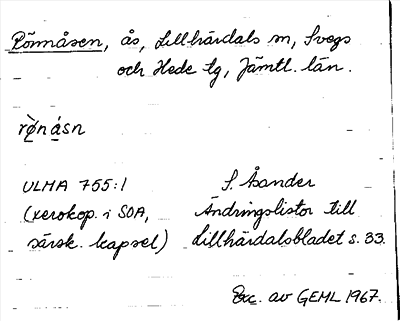 Rönnåsen, ås, Lillhärdals sn, Svegs
och Hede tg, Jämtl. län.
rø̀nåsn
ULMA 755:1
(xerokop. i SOA,
särsk. kapsel)
S. Åsander
Ändringslistor till
Lillhärdalsbladet s. 33.
Exc. av GEML 1967.